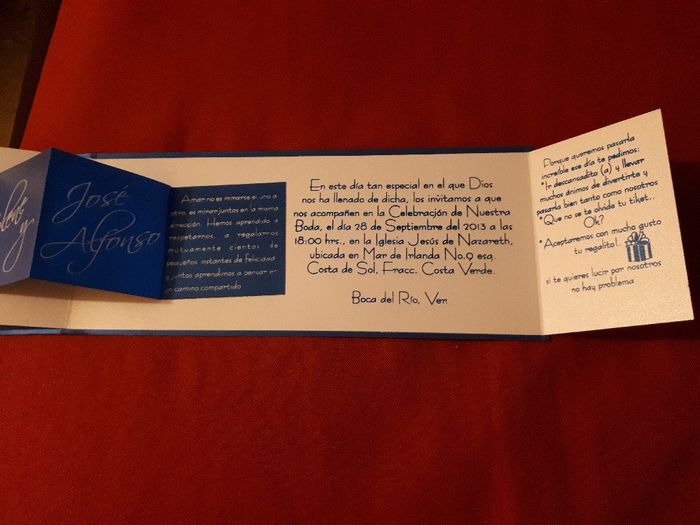 José
Alfonso
Amar no es mirarse el uno al
otro, es mirar juntos en la misma
dirección. Hemos aprendido a
respetarnos, a regalarnos
mutuamente cientos de
pequeños instantes de felicidad
y juntos aprendimos a pensar en
un camino compartido
En este día tan especial en el que Dios
nos ha llenado de dicha, los invitamos a que
nos acompañen en la Celebración de Nuestra
Boda, el día 28 de Septiembre del 2013 a las
18:00 hrs., en la Iglesia Jesús de Nazareth,
ubicada en Mar de Irlanda No.9 esq.
Costa de Sol, Fracc. Costa Verde.
Boca del Río, Ver.
queremos pasarla
increíble ese día te pedimos:
*Ir descansadito (a) y llevar
muchos ánimos de divertirte y
pasarla bien tanto como nosotros
*Que no se te olvide tu tiket..
Ok?
*Aceptaremos con mucho gusto
tu regalito!..
si te quieres lucir por nosotros
no hay problema